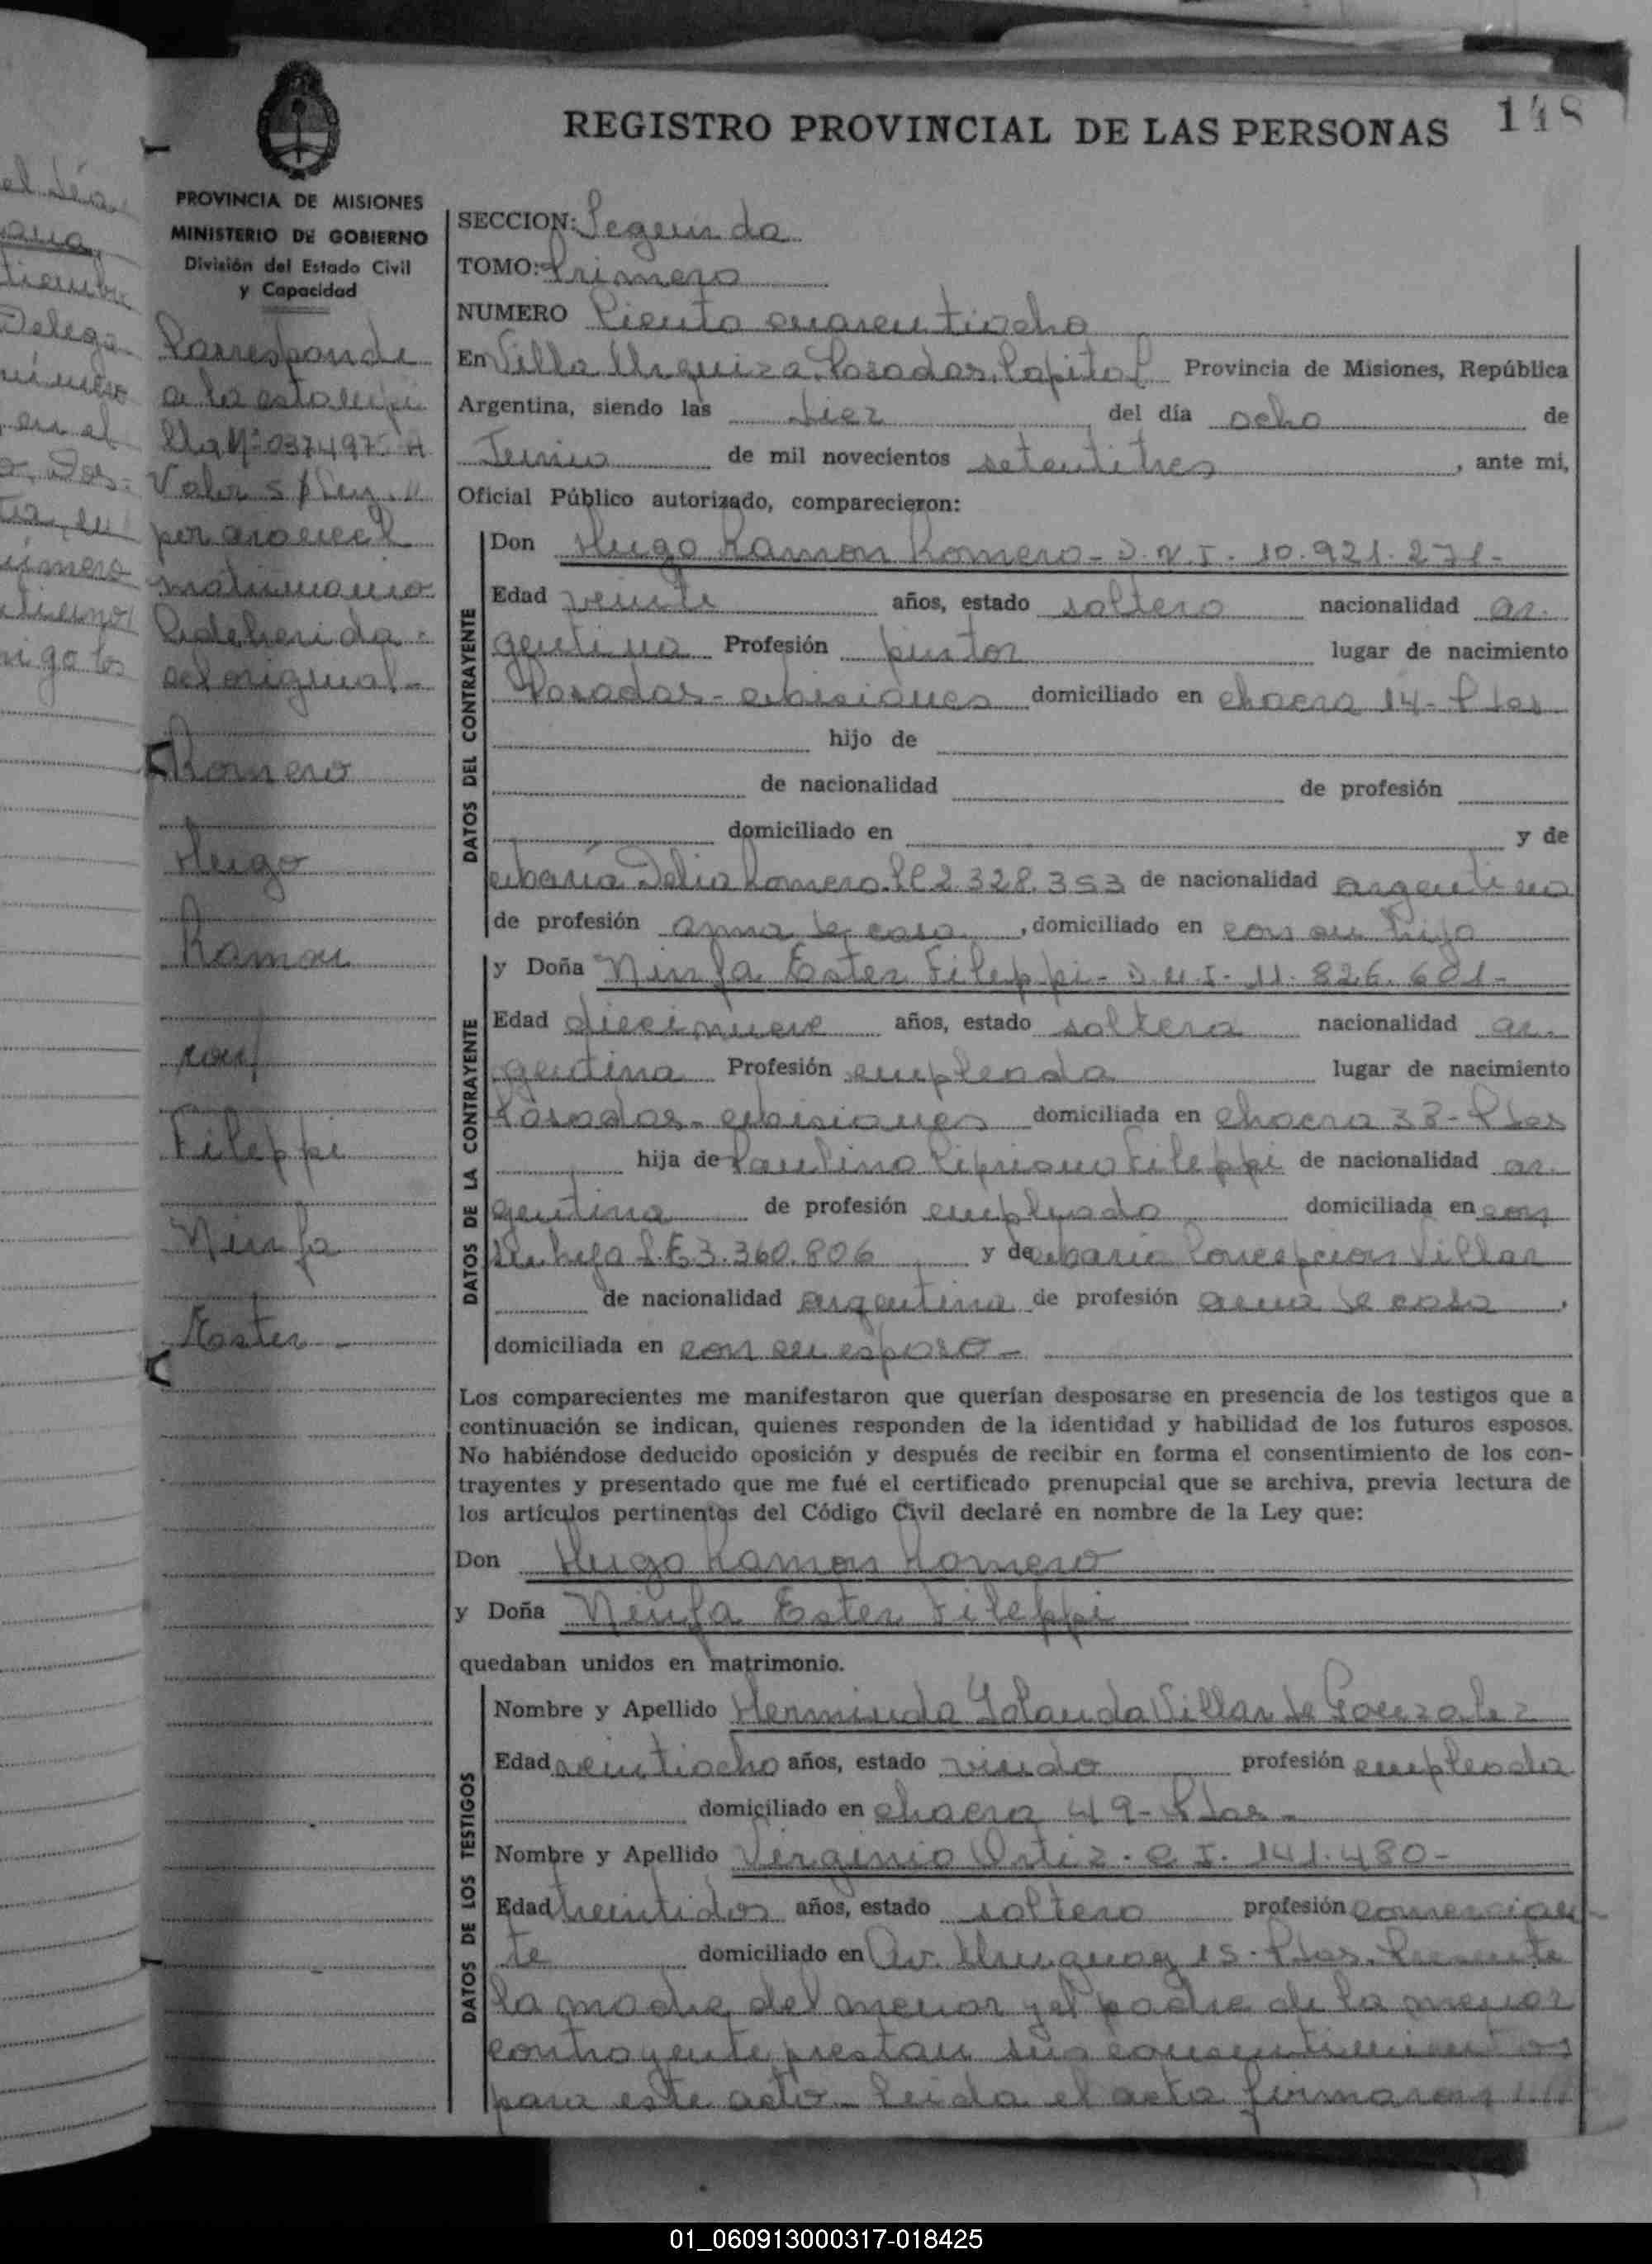 148
REGISTRO PROVINCIAL DE LAS PERSONAS
PROVINCIA DE MISIONES
MINISTERIO DE GOBIERNO
División del Estado Civil
y Capacidad
Corresponde
a la estampi
lla Nº 0374975 A
Valor $ Ley
por arancel
matrimonio
adherida
al original-
Romero
Hugo
Ramon
con
Fileppi
Ninfa
Ester -
SECCION: Segunda
TOMO: Primero
NUMERO Ciento cuarentiocho
En Villa Urquiza, Posadas, Capital Provincia de Misiones, República
Argentina, siendo las diez del día ocho de
Junio de mil novecientos setentitres, ante mi,
Oficial Público autorizado, comparecieron:
DATOS DEL CONTRAYENTE
Don Hugo Ramon Romero - D.N.I. 10.921.271-
Edad veinte años, estado soltero nacionalidad ar-
gentina Profesión pintor lugar de nacimiento
Posadas - Misiones domiciliado en chacra 14 - Pdas
hijo de
de nacionalidad de profesión
domiciliado en y de
Maria Delia Romero. LC 2.328.353 de nacionalidad argentina
de profesión ama de casa, domiciliado en con su hijo
DATOS DE LA CONTRAYENTE
y Doña Ninfa Ester Fileppi - D.N.I. 11.826.601-
Edad diecinueve años, estado soltera nacionalidad ar-
gentina Profesión empleada lugar de nacimiento
Posadas - Misiones domiciliada en chacra 38 - Pdas
hija de Paulino Cipriano Fileppi de nacionalidad ar-
gentina de profesión empleado domiciliada en con
su hija L.E 3.360.806 y de Maria Concepcion Villar
de nacionalidad argentina de profesión ama de casa,
domiciliada en con su esposo -
Los comparecientes me manifestaron que querían desposarse en presencia de los testigos que a
continuación se indican, quienes responden de la identidad y habilidad de los futuros esposos.
No habiéndose deducido oposición y después de recibir en forma el consentimiento de los con-
trayentes y presentado que me fué el certificado prenupcial que se archiva, previa lectura de
los artículos pertinentes del Código Civil declaré en nombre de la Ley que:
Don Hugo Ramon Romero
y Doña Ninfa Ester Fileppi
quedaban unidos en matrimonio.
DATOS DE LOS TESTIGOS
Nombre y Apellido Herminda Yolanda Villar de Gonzalez
Edad veintiocho años, estado viuda profesión empleada
domiciliado en chacra 49 - Pdas -
Nombre y Apellido Virginio Ortiz. C.I. 141.480-
Edad treintidos años, estado soltero profesión comercian
te domiciliado en Av. Uruguay 15 - Pdas. Presente
la madre del menor y el padre de la menor
contrayente prestan sus consentimientos
para este acto - Leida el acta firmaron
01_060913000317-018425